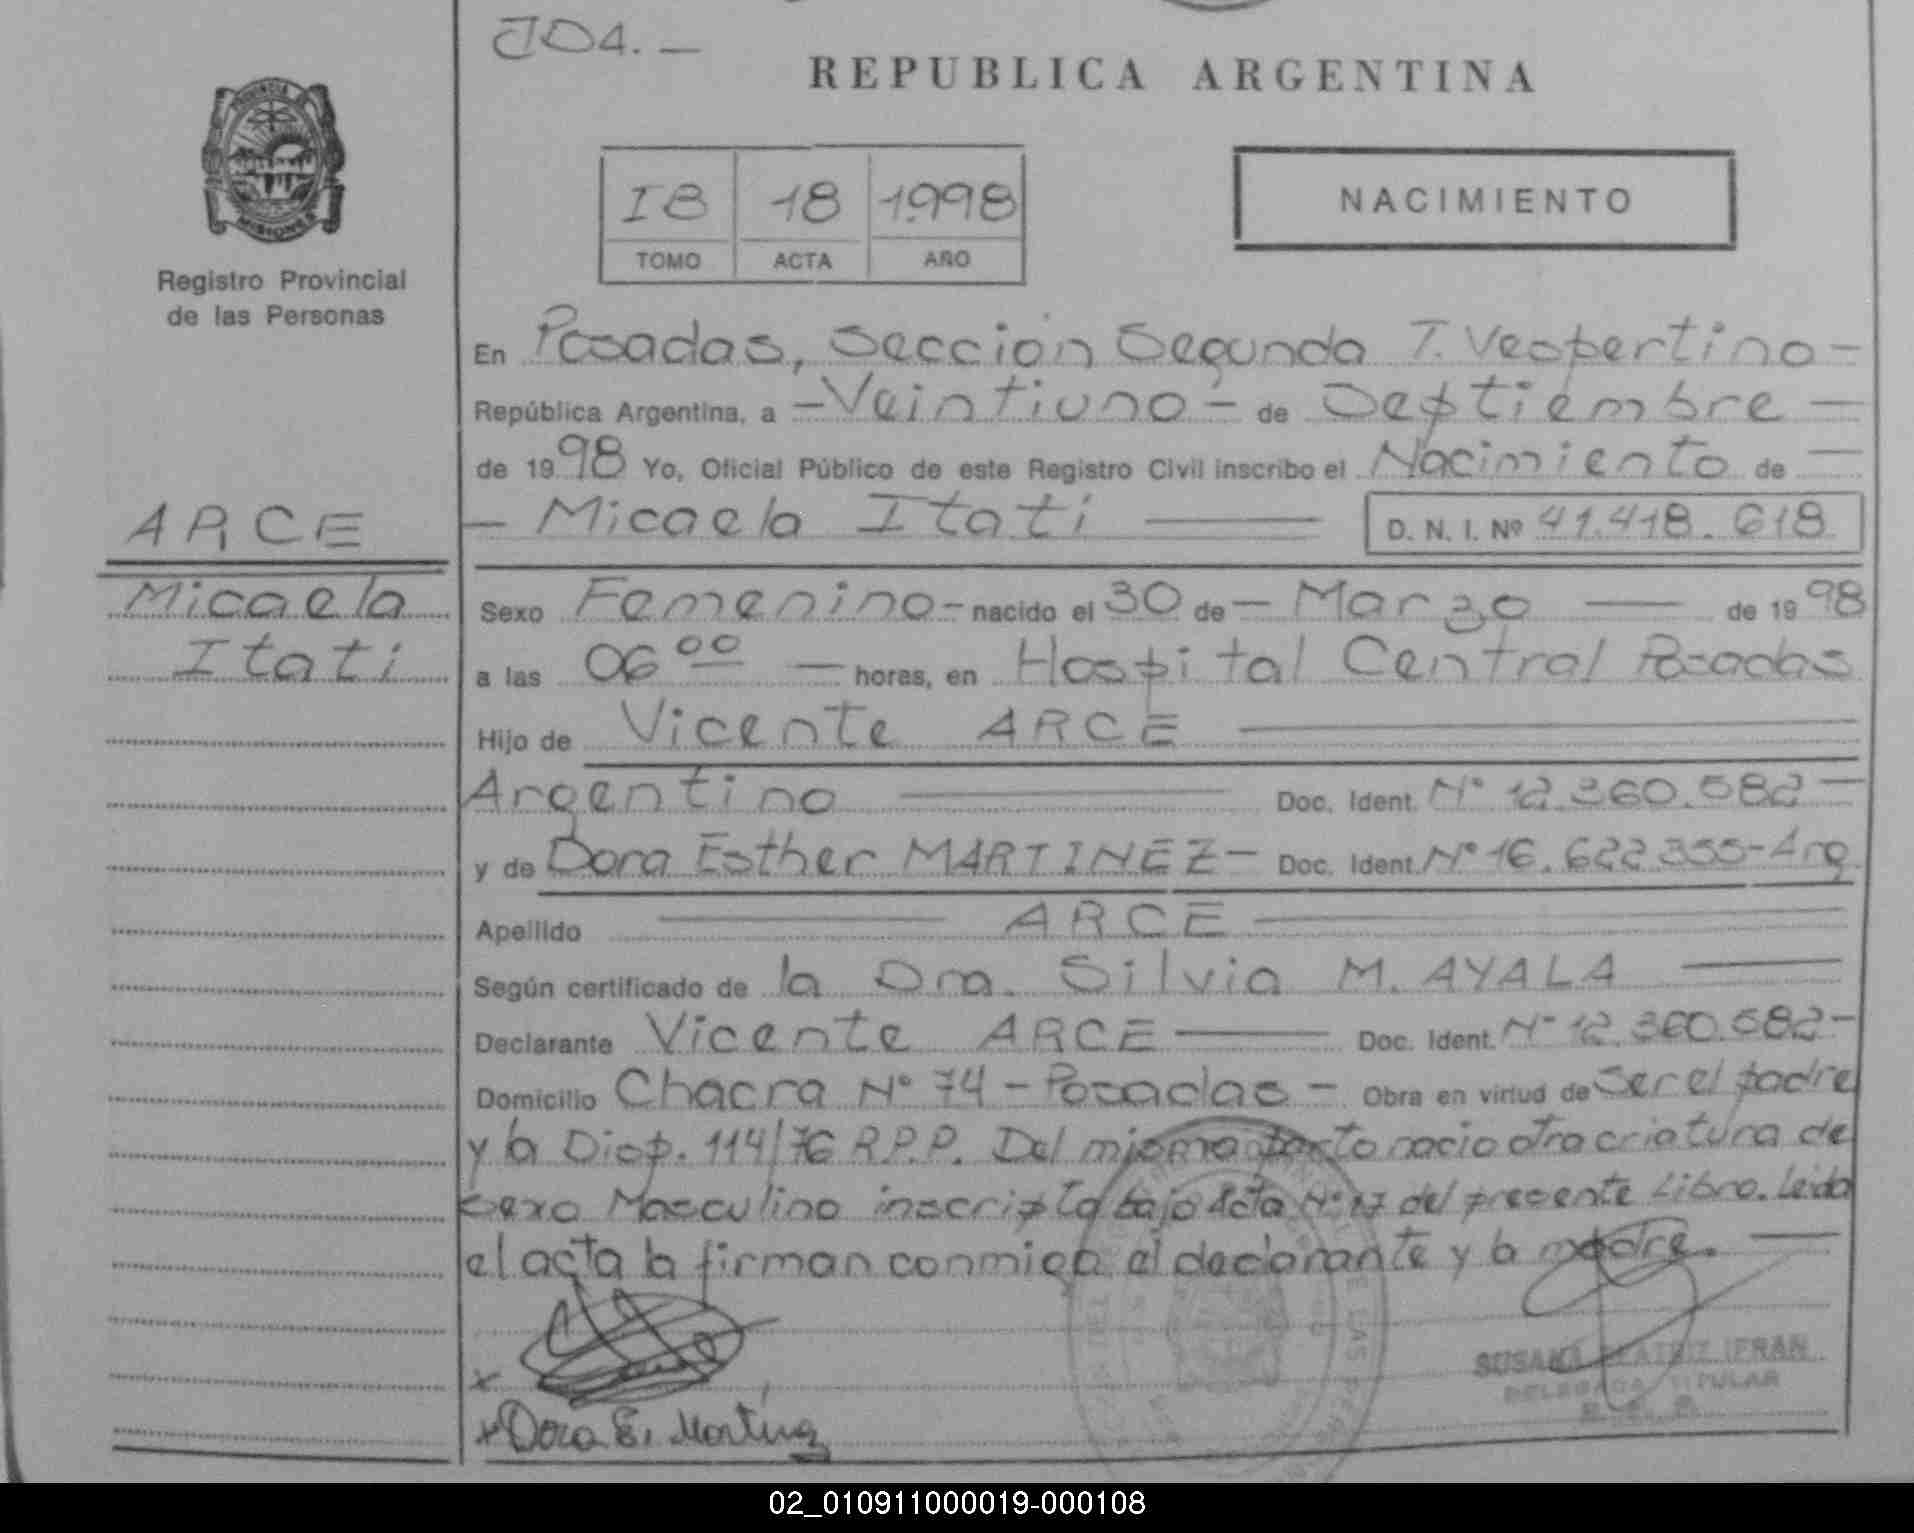 JD4. —
REPUBLICA ARGENTINA
PROVINCIA DE
MISIONES
Registro Provincial
de las Personas
I8 18 1998
TOMO ACTA AÑO
NACIMIENTO
En Posadas, Sección Segunda T. Vespertino —
República Argentina, a — Veintiuno — de Septiembre —
de 1998 Yo, Oficial Público de este Registro Civil inscribo el Nacimiento de —
— Micaela Itati — D. N. I. Nº 41.418.618
ARCE
Micaela
Itati
Sexo Femenino — nacido el 30 de — Marzo — de 1998
a las 06 00 — horas, en Hospital Central Posadas
Hijo de Vicente ARCE
Argentino — Doc. Ident. Nº 12.360.582 —
y de Dora Esther MARTINEZ — Doc. Ident. Nº 16.622.355 - Arg
Apellido — ARCE —
Según certificado de la Dra. Silvia M. AYALA —
Declarante Vicente ARCE — Doc. Ident. Nº 12.360.582 —
Domicilio Chacra Nº 74 - Posadas - Obra en virtud de ser el padre
y la Disp. 114/76 R.P.P. Del mismo parto nacio otra criatura de
sexo Masculino inscripta bajo Acta Nº 17 del presente Libro. Leida
el acta la firman conmigo el declarante y la madre. —
x
x Dora E. Martinez
SUSANA BEATRIZ IFRAN
DELEGADA TITULAR
02_010911000019-000108